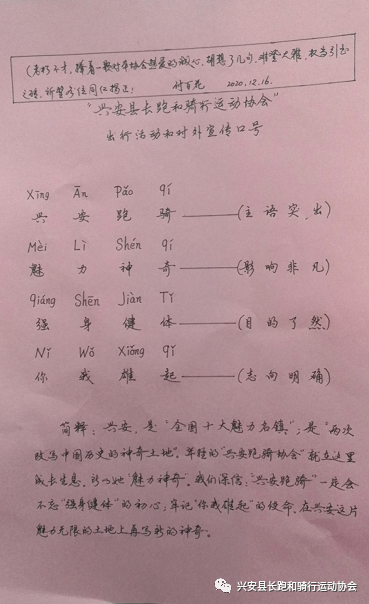 (老朽不才，揣着一般对本协会热爱的诚心，胡想了几句，难登大雅，权当引玉
之砖，祈望各位同仁指正! 付百花 2020.12.16.
“兴安县长跑和骑行运动协会”
出行活动和对外宣传口号
Xīng Ān Pǎo qí
兴 安 跑 骑——(主语突出)
Mèi Lì Shén qí
魅 力 神 奇——(影响非凡)
qiáng Shēn Jiàn Tǐ
强 身 健 体——(目的了然)
Nǐ Wǒ Xióng qǐ
你 我 雄 起——(志向明确)
简释：兴安，是“全国十大魅力名镇”；是“两次
改写中国历史的神奇土地”。年轻的“兴安跑骑协会”就在这里
成长生息，所以她“魅力神奇”。我们深信：“兴安跑骑”一定会
不忘“强身健体”的初心；牢记“你我雄起”的使命，在兴安这片
魅力无限的土地上再写新的神奇。
兴安县长跑和骑行运动协会